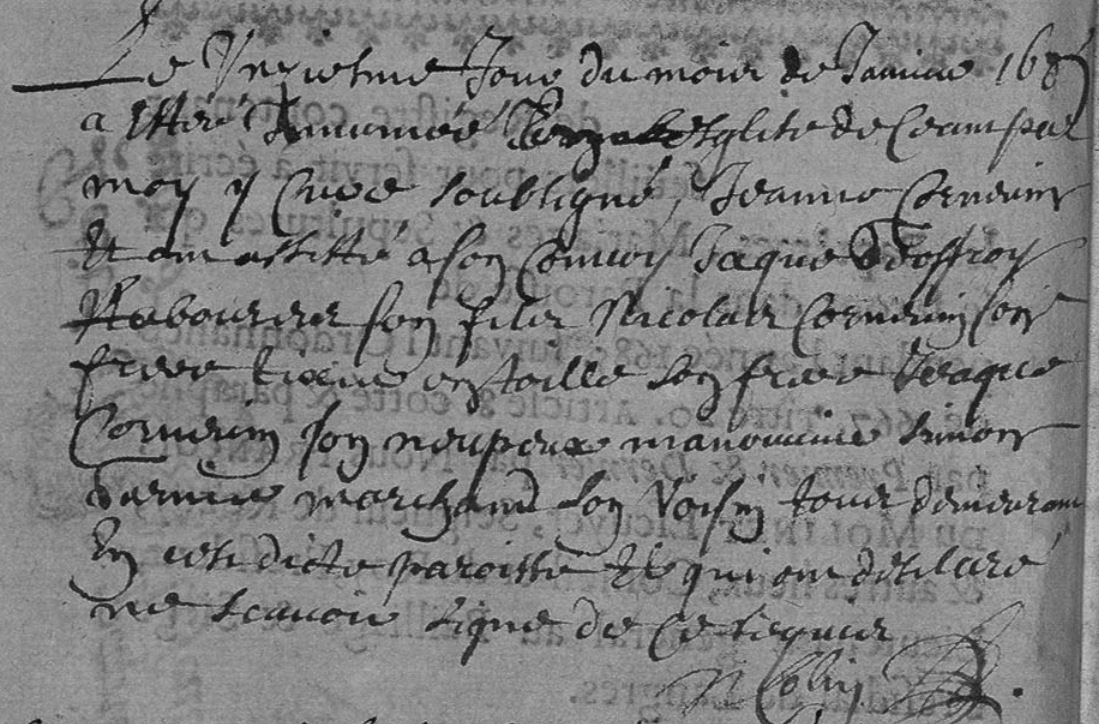 Le Treziesme Jour du mois de Janvier 168
a Esté Inhumée Eglise de Ceans par
moy p Curé soubsigné, Jeanne Cornevin
Et ont assisté a son Convoy Jaque Geoffroy
son filz Nicolas Cornevin son
frere en taille son frere Jaque
Cornevin son nepveux manouvrie Simon
marchand son Voisin tous demeurant
En cette dicte paroisse Et qui ont desclaré
ne scavoir signe de ce requis
N Colin